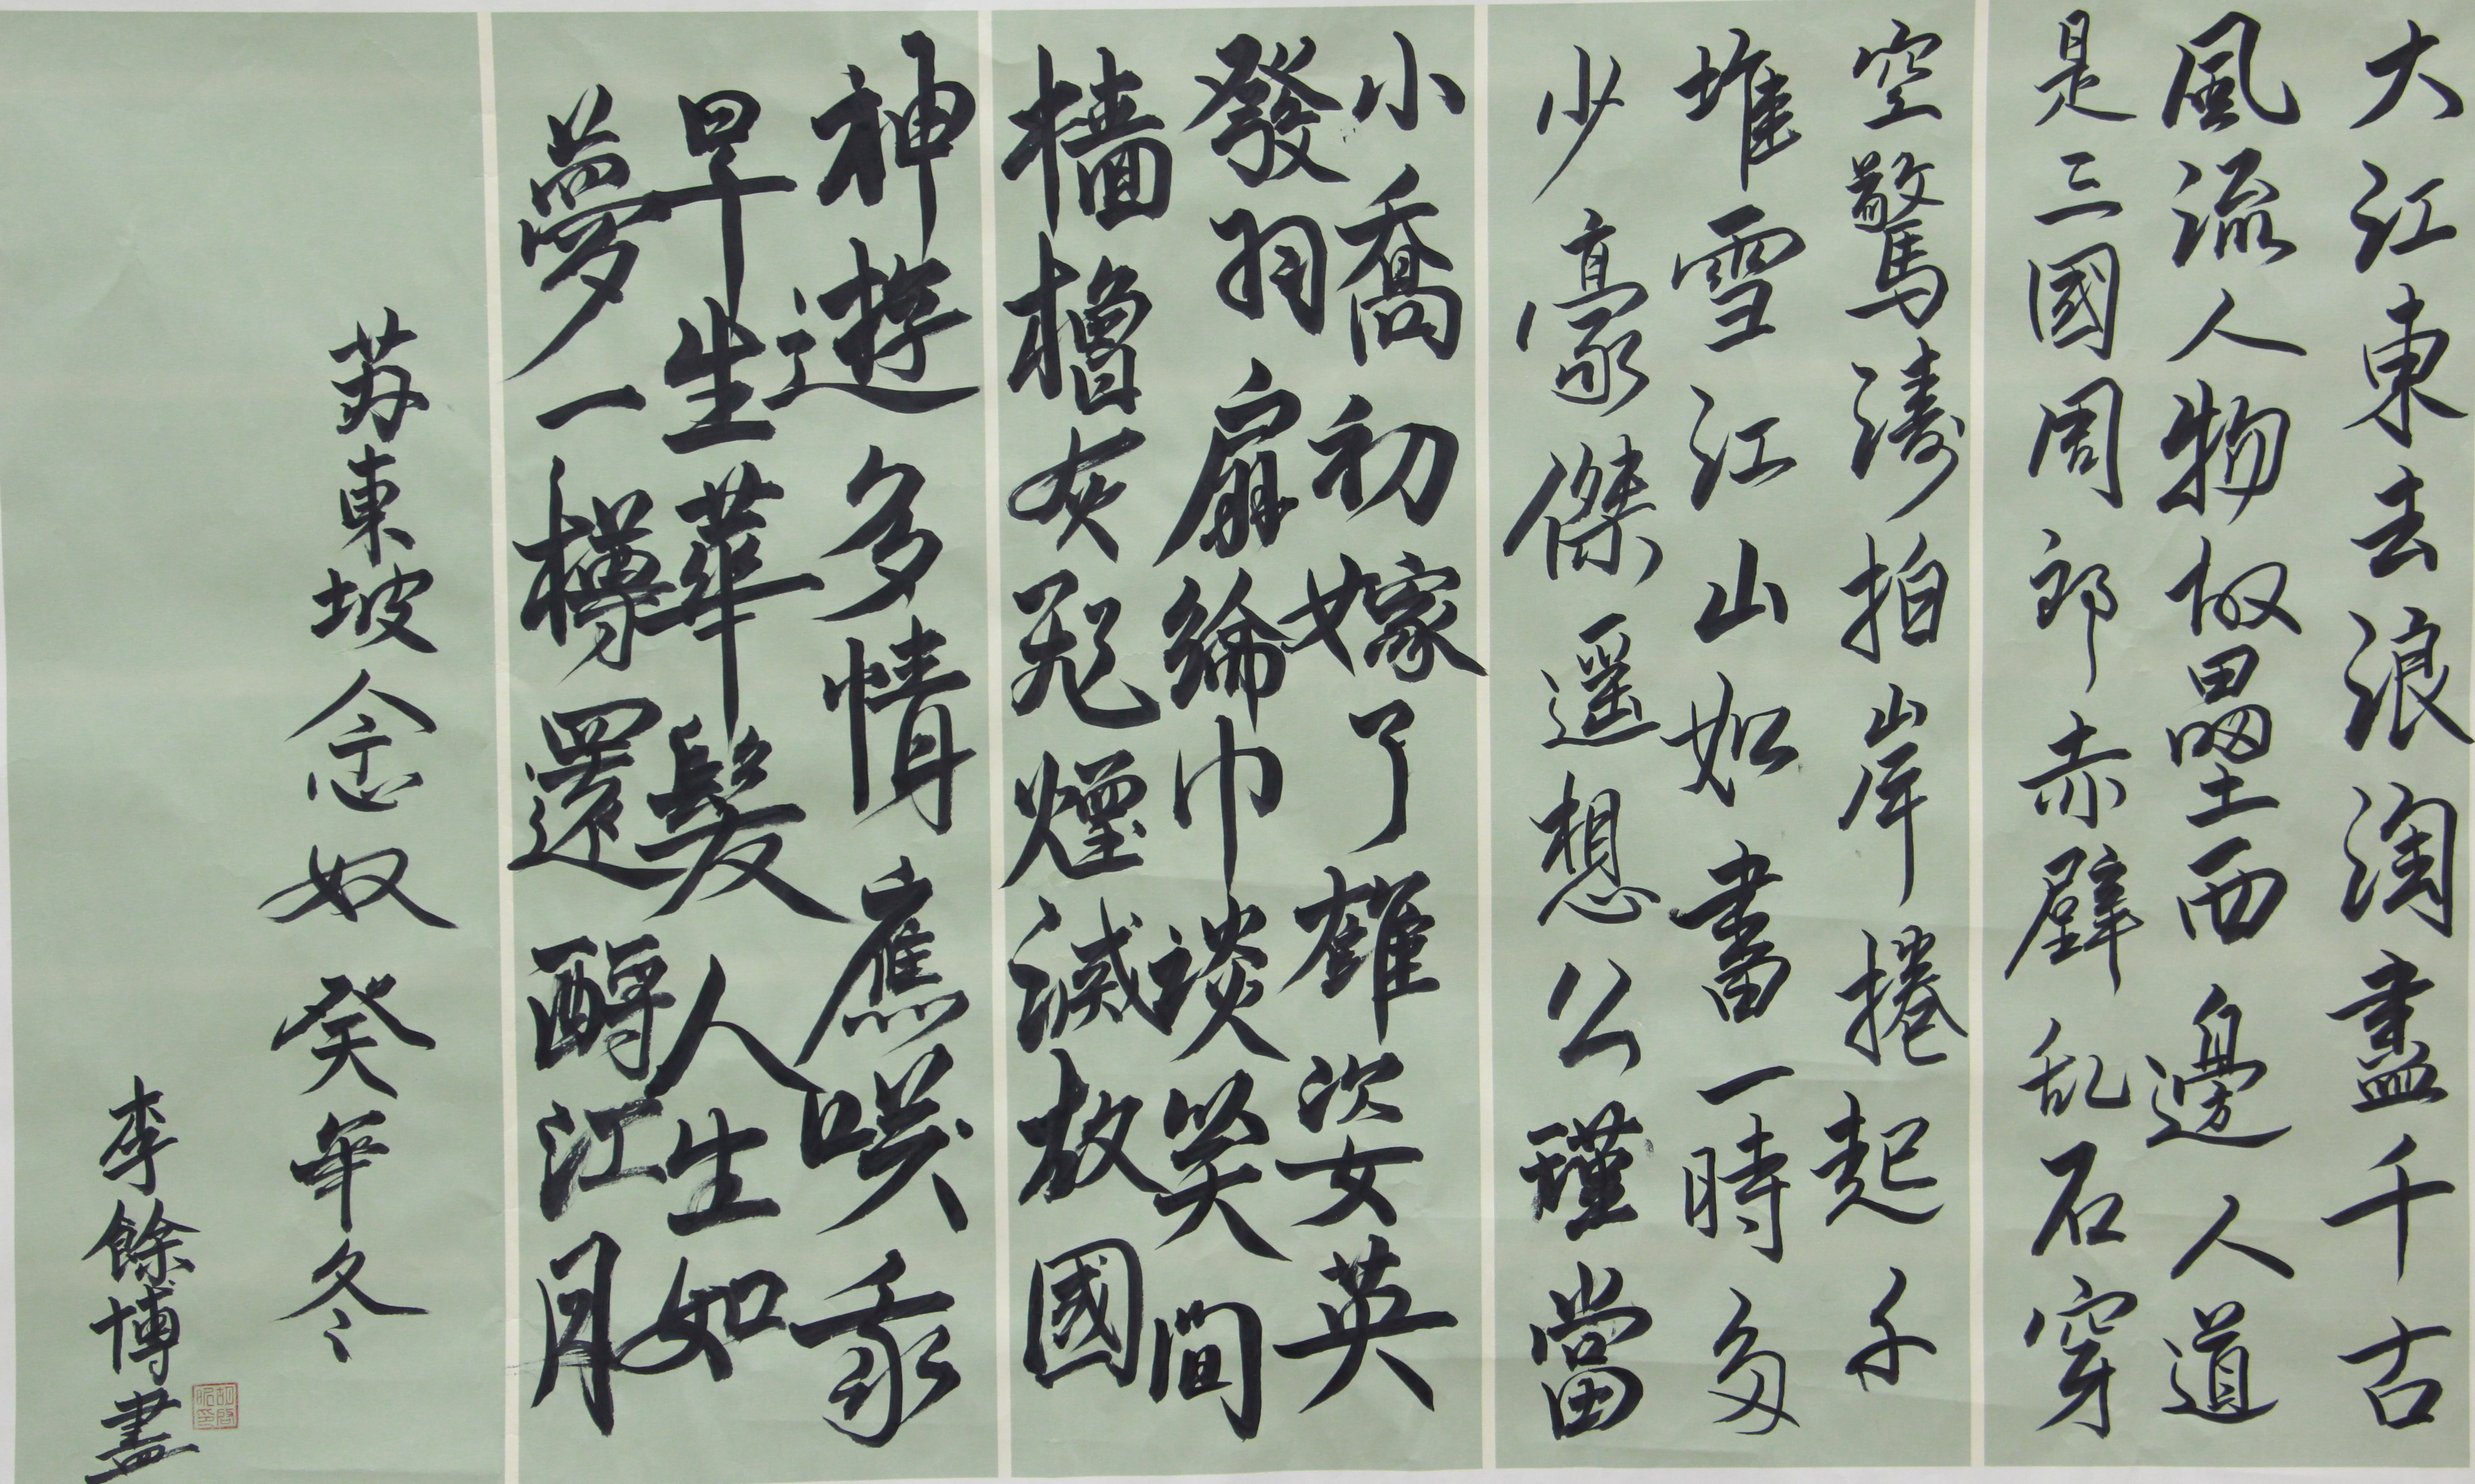 大江東去浪淘盡千古
風流人物故壘西邊人道
是三國周郎赤壁乱石穿
空驚濤拍岸捲起千
堆雪江山如畫一時多
少豪傑遥想公瑾當
小喬初嫁了雄姿英
發羽扇綸巾談笑間
檣櫓灰飛煙滅故國
神遊多情應咲我
早生華髮人生如
夢一樽還酹江月
苏東坡念奴 癸年冬
李餘博書